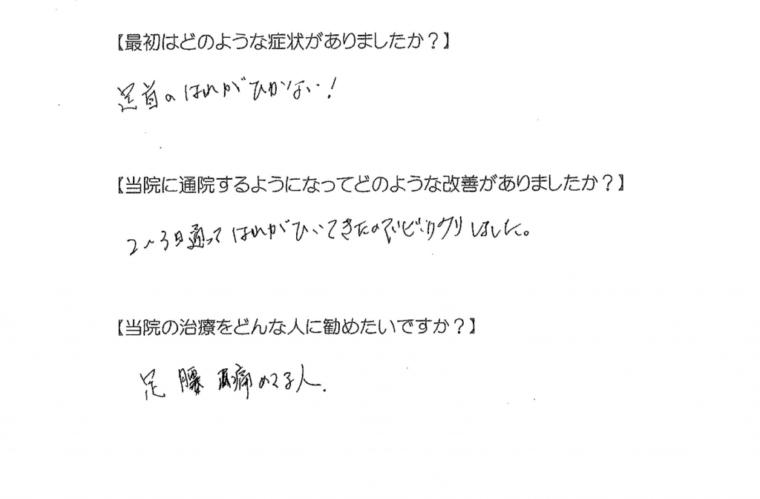 【最初はどのような症状がありましたか？】
足首のはれがひかない！
【当院に通院するようになってどのような改善がありましたか？】
2～3日通ってはれがひいてきたのでビックリしました。
【当院の治療をどんな人に勧めたいですか？】
足 腰 痛めてる人.